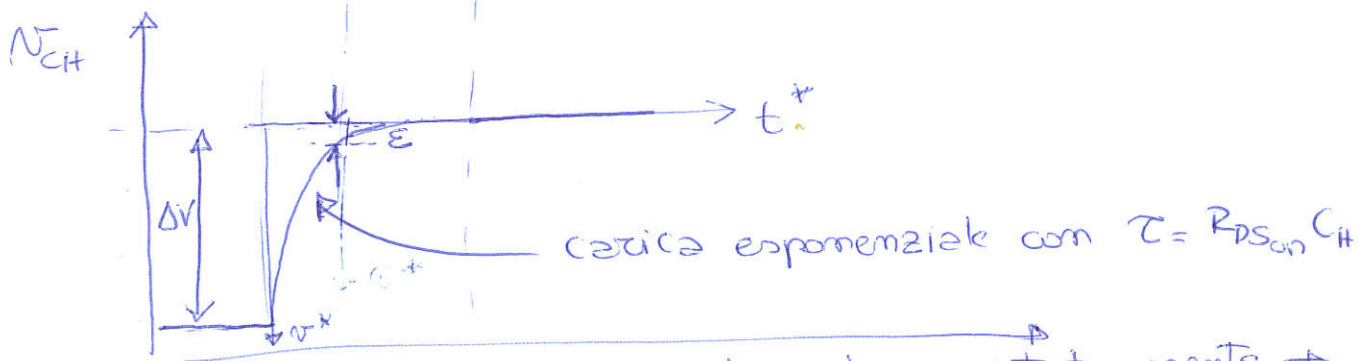 v_CH
t*
ε
ΔV
carica esponenziale con τ = R_DSon C_H
v*